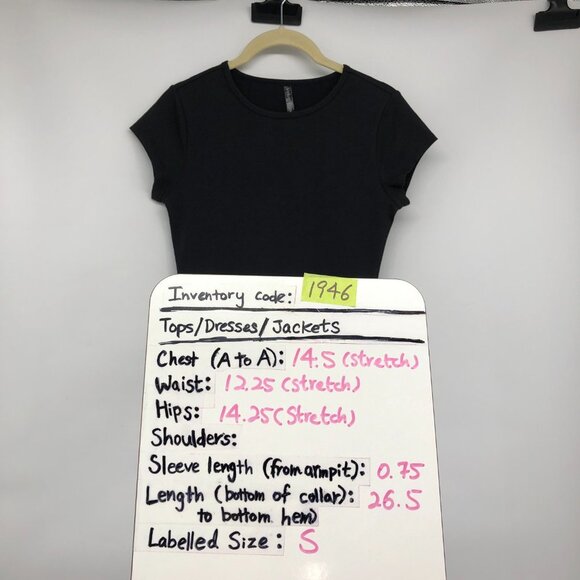 Inventory code: 1946
Tops/Dresses/Jackets
Chest (A to A): 14.5 (stretch)
Waist: 12.25 (stretch)
Hips: 14.25 (Stretch)
Shoulders:
Sleeve length (from armpit): 0.75
Length (bottom of collar): 26.5
to bottom hem)
Labelled Size: S